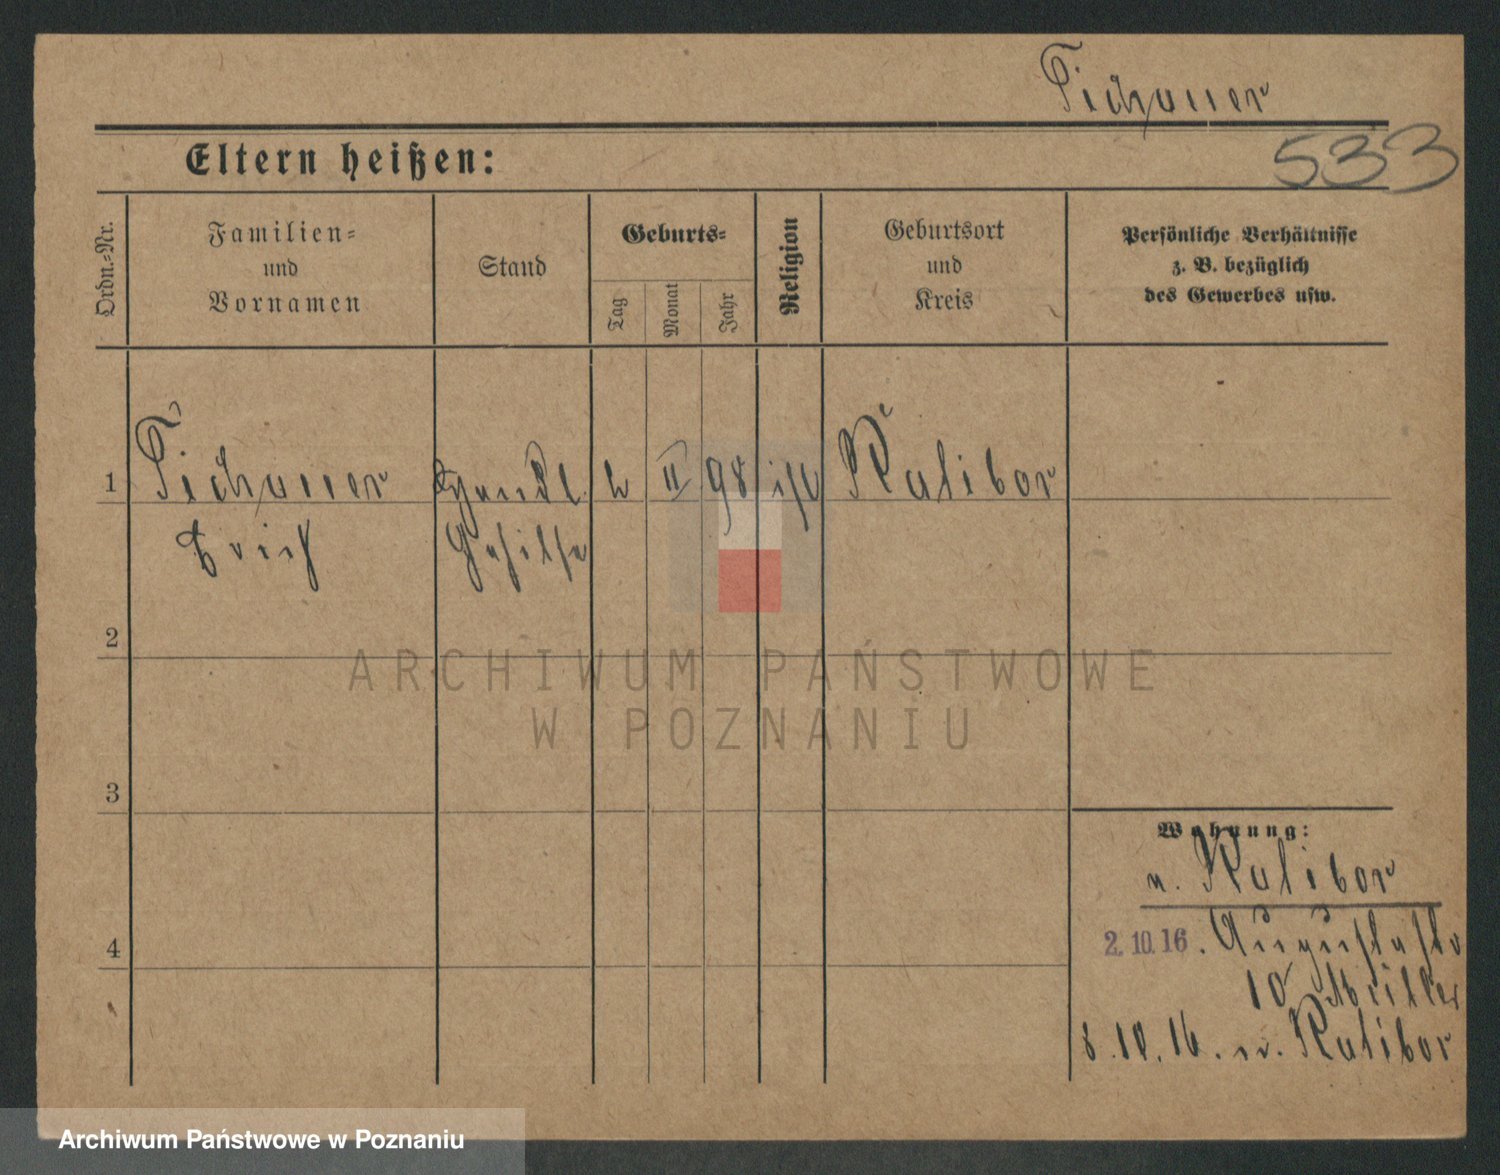 Tichauer
533
Eltern heißen:
Ordn.=Nr.
Familien=
und
Vornamen
Stand
Geburts=
Tag
Monat
Jahr
Religion
Geburtsort
und
Kreis
Persönliche Verhältnisse
z. B. bezüglich
des Gewerbes usw.
1 Tichauer Handl. 2 II 98 isr Ratibor
Erich Gehilfe
2
3
4
Wohnung:
v. Ratibor
2. 10. 16. Augustastr
10
8. 10. 16. n. Ratibor
ARCHIWUM PAŃSTWOWE
W POZNANIU
Archiwum Państwowe w Poznaniu